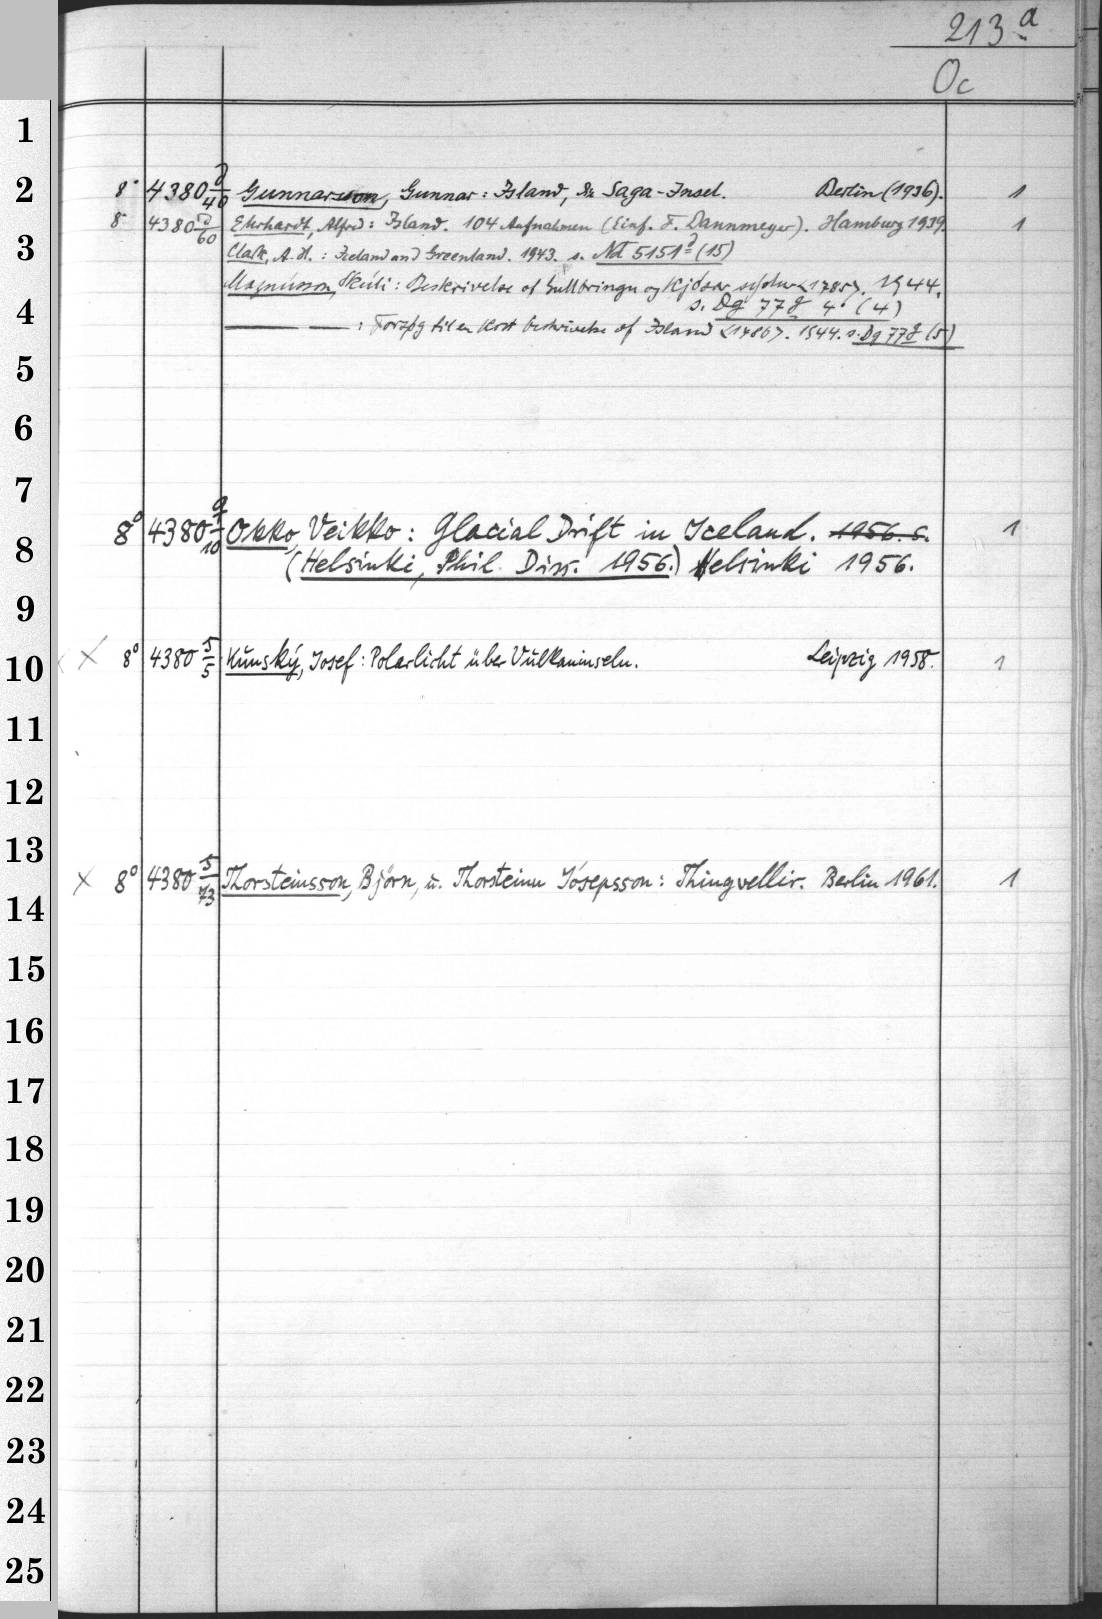 213 a
Oc
8° 4380 d/40 Gunnarsson, Gunnar: Island, die Saga-Insel. Berlin (1936). 1
8° 4380 d/60 Ehrhardt, Alfred: Island. 104 Aufnahmen (Einf. F. Dannmeyer). Hamburg 1939. 1
Clark, A. H.: Iceland and Greenland. 1943. s. Nd 5151 d (15)
Magnússon, Skúli: Beskrivelse af Gullbringu og Kjósar <1785>. 1944.
s. Dg 77 g 4° (4)
— — : Forsøg til en kort beskrivelse af Island <1786>. 1944. s. Dg 77 g (5)
8° 4380 g/10 Okko, Veikko: Glacial Drift in Iceland. 1956. s.
(Helsinki, Phil. Diss. 1956.) Helsinki 1956.
× 8° 4380 5/5 Kunský, Josef: Polarlicht über Vulkaninseln. Leipzig 1958. 1
× 8° 4380 5/73 Thorsteinsson, Björn, u. Thorsteinn Jósepsson: Thingvellir. Berlin 1961. 1
1
2
3
4
5
6
7
8
9
10
11
12
13
14
15
16
17
18
19
20
21
22
23
24
25